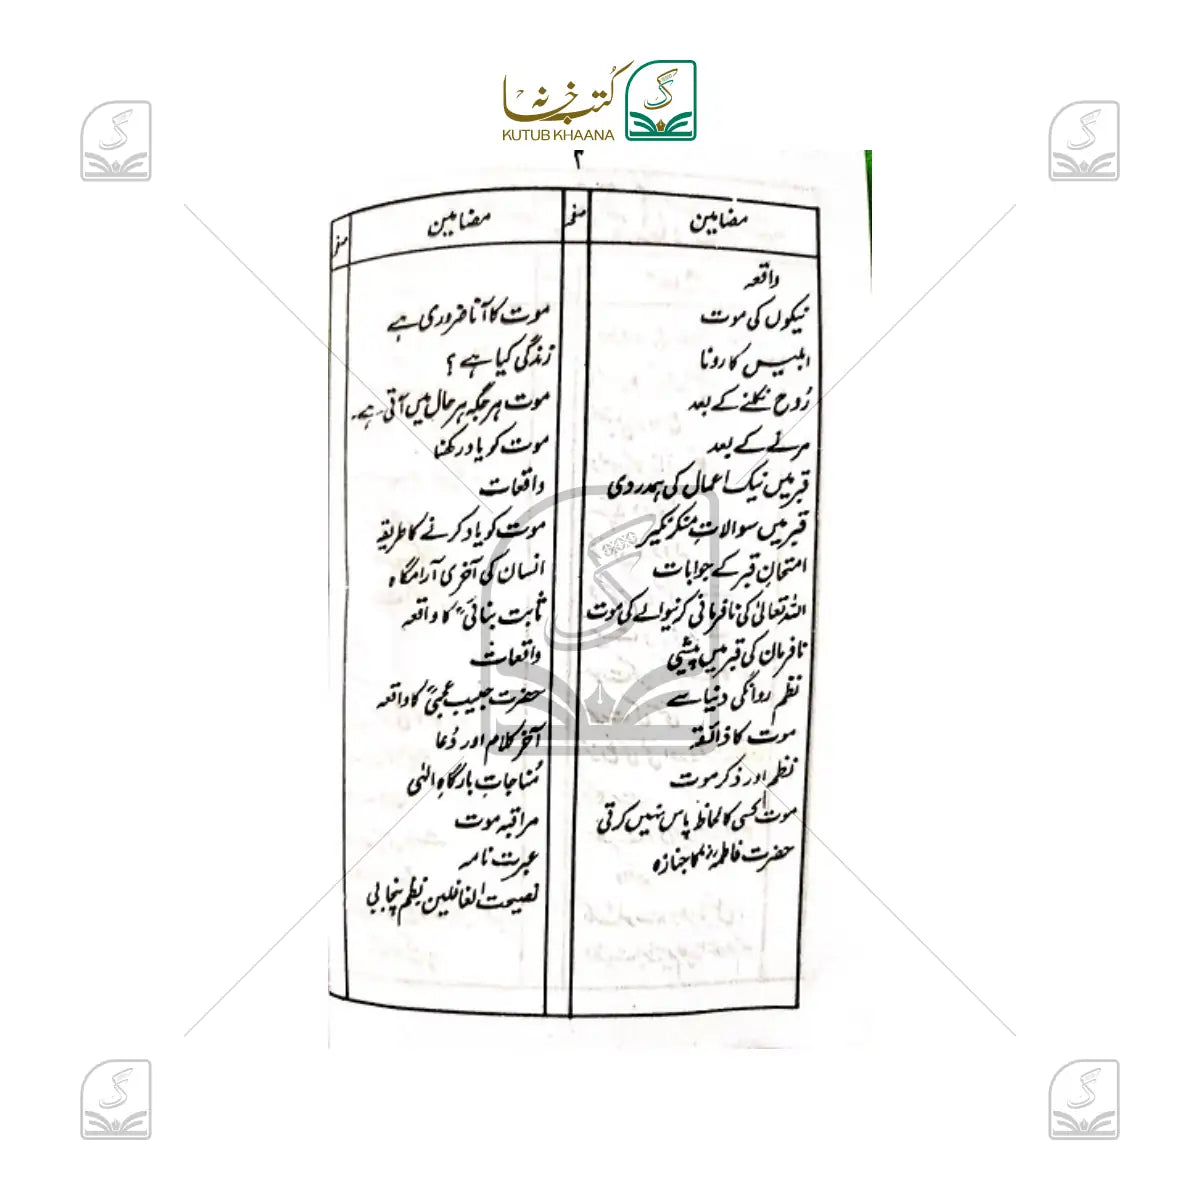 کتب خانہ
KUTUB KHAANA
۲
مضامین
صفحہ
واقعہ
نیکوں کی موت
ابلیس کا رونا
رُوح نکلنے کے بعد
مرنے کے بعد
قبر میں نیک اعمال کی ہمدردی
قبر میں سوالات منکر نکیر
امتحانِ قبر کے جوابات
اللہ تعالیٰ کی نافرمانی کرنیوالے کی موت
نافرمان کی قبر میں پیشی
نظم روانگی دنیا سے
موت کا ذائقہ
نظم اور ذکر موت
موت کسی کا لحاظ پاس نہیں کرتی
حضرت فاطمہؓ کا جنازہ
مضامین
صفحہ
موت کا آنا ضروری ہے
زندگی کیا ہے ؟
موت ہر جگہ ہر حال میں آتی ہے۔
موت کو یاد رکھنا
واقعات
موت کو یاد کرنے کا طریقہ
انسان کی آخری آرامگاہ
ثابت بنانیؒ کا واقعہ
واقعات
حضرت حبیب عجمیؒ کا واقعہ
آخر کلام اور دُعا
مُناجات بارگاہِ الٰہی
مراقبہ موت
عبرت نامہ
نصیحت الغافلین نظم پنجابی